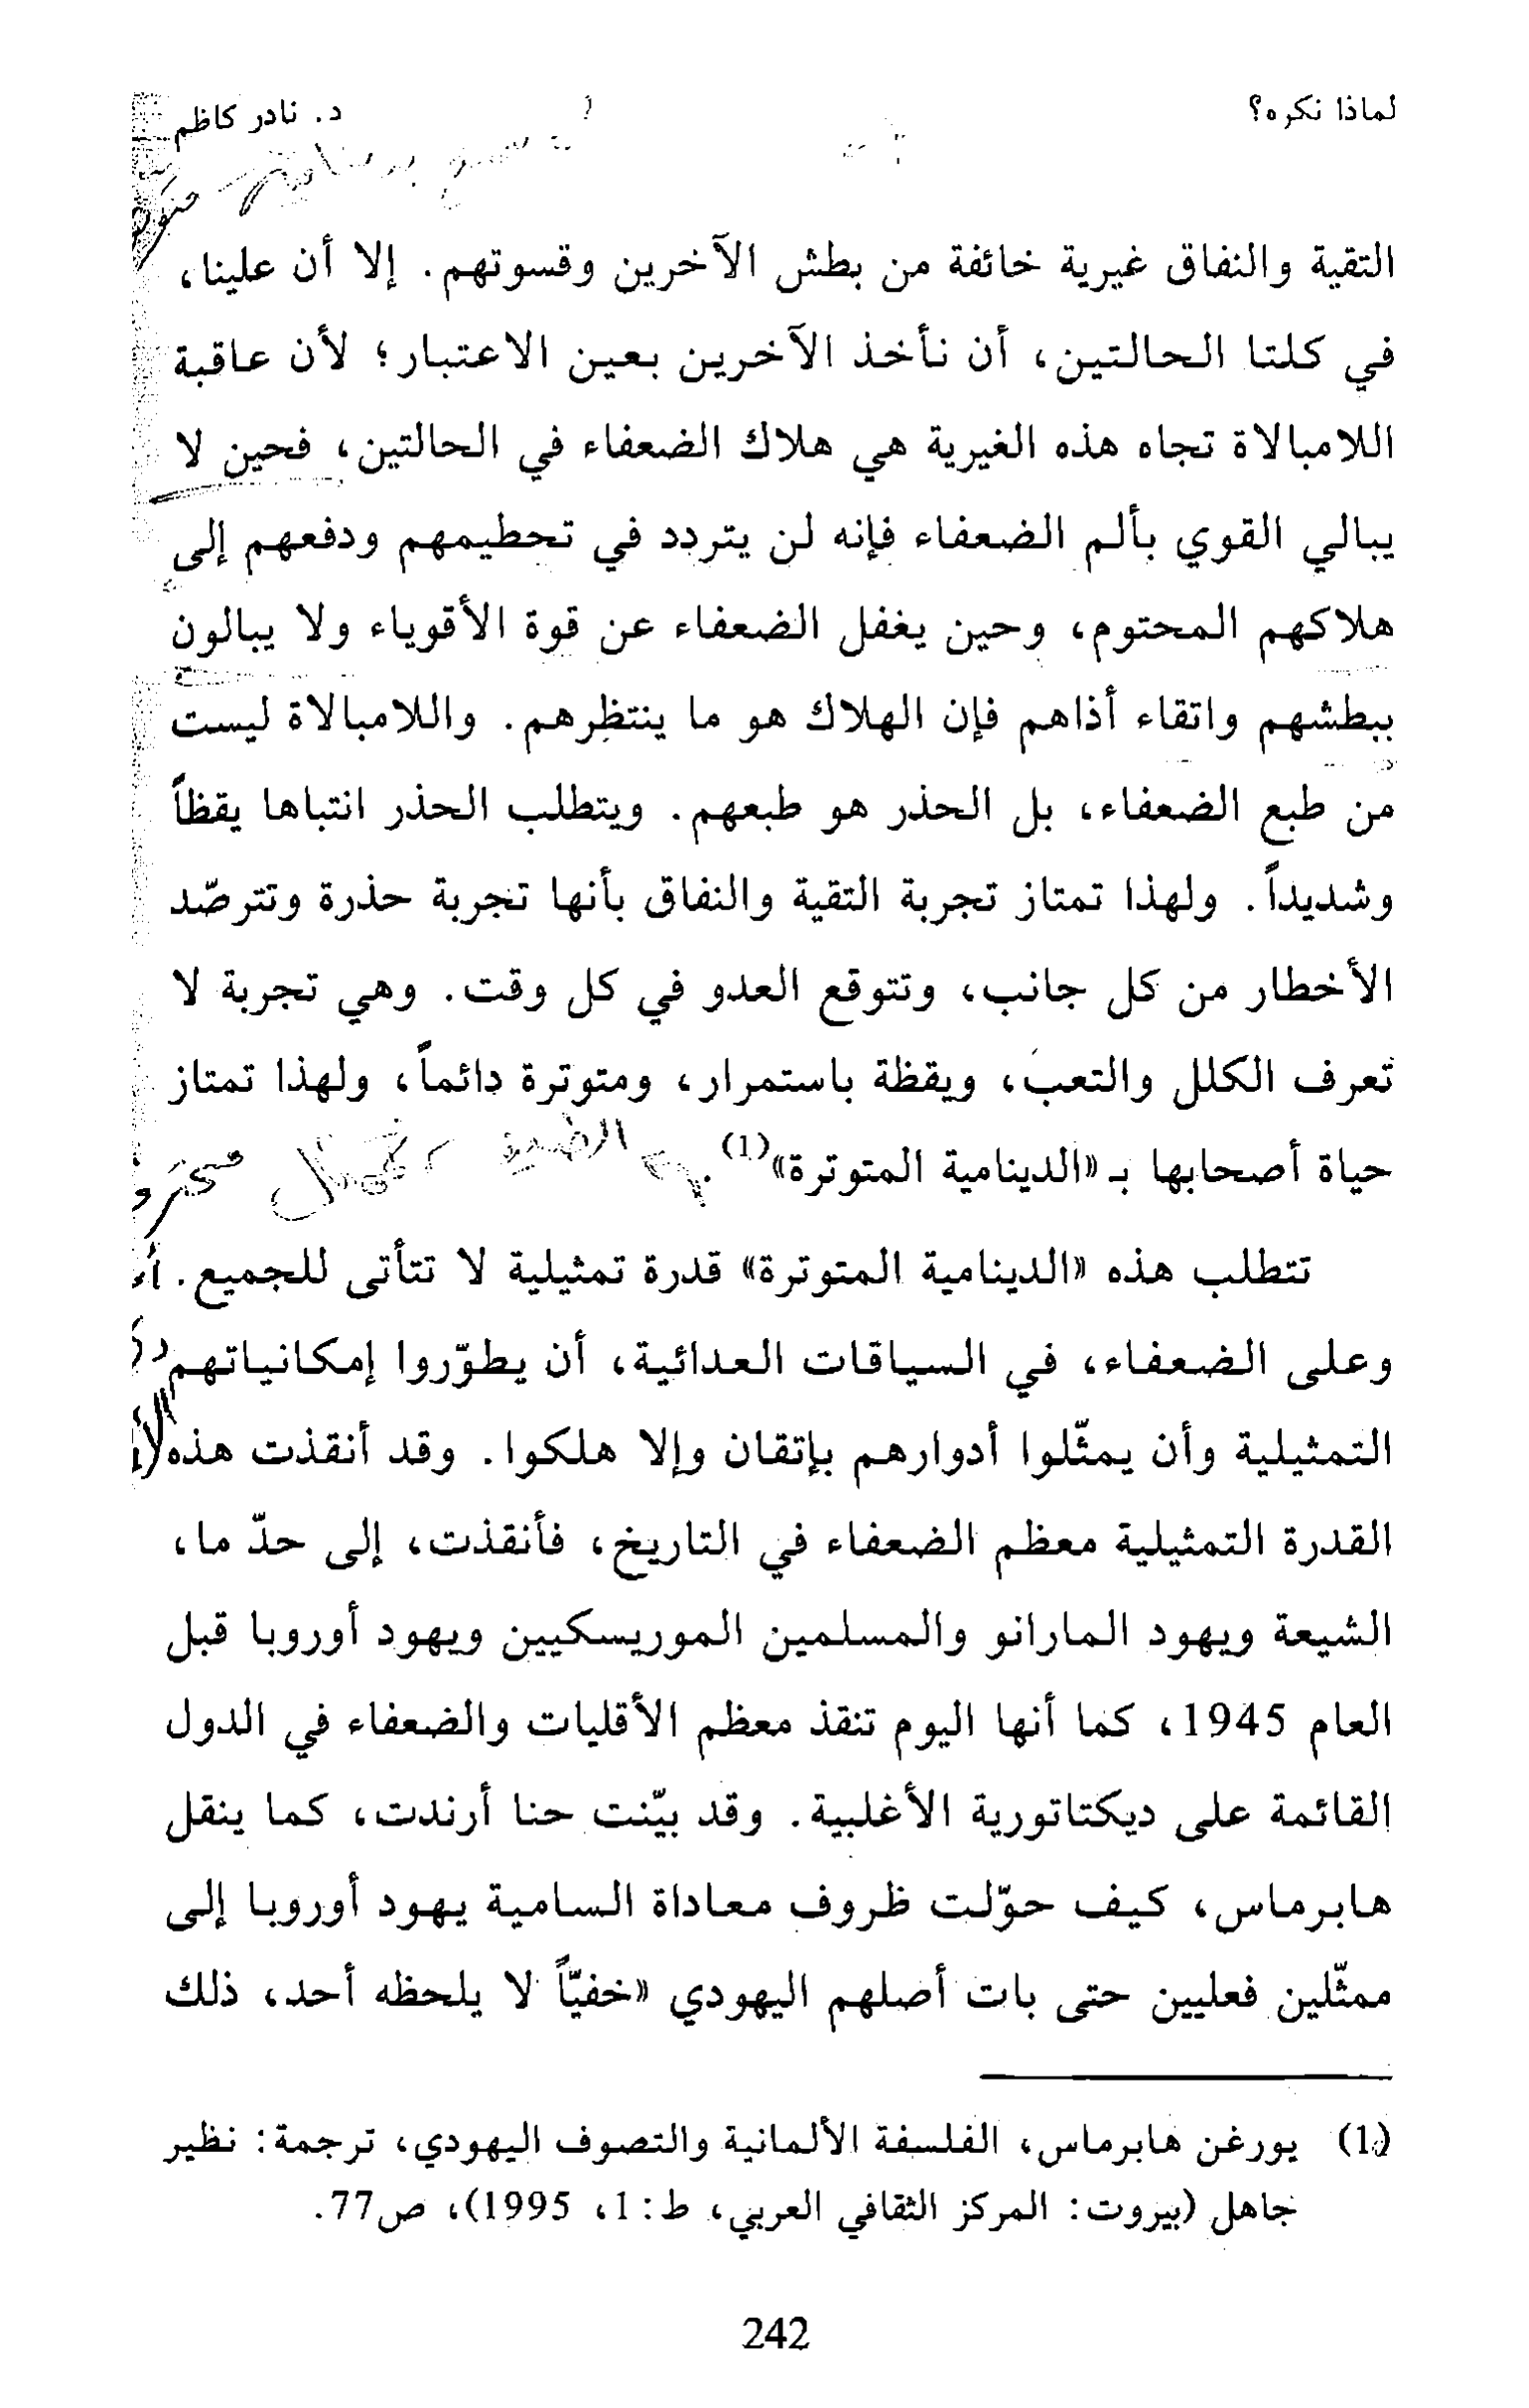 لماذا نكره؟
د. نادر كاظم
التقية والنفاق غيرية خائفة من بطش الآخرين وقسوتهم. إلا أن علينا،
في كلتا الحالتين، أن نأخذ الآخرين بعين الاعتبار؛ لأن عاقبة
اللامبالاة تجاه هذه الغيرية هي هلاك الضعفاء في الحالتين، فحين لا
يبالي القوي بألم الضعفاء فإنه لن يتردد في تحطيمهم ودفعهم إلى
هلاكهم المحتوم، وحين يغفل الضعفاء عن قوة الأقوياء ولا يبالون
ببطشهم واتقاء أذاهم فإن الهلاك هو ما ينتظرهم. واللامبالاة ليست
من طبع الضعفاء، بل الحذر هو طبعهم. ويتطلب الحذر انتباها يقظاً
وشديداً. ولهذا تمتاز تجربة التقية والنفاق بأنها تجربة حذرة وتترصّد
الأخطار من كل جانب، وتتوقع العدو في كل وقت. وهي تجربة لا
تعرف الكلل والتعب، ويقظة باستمرار، ومتوترة دائماً، ولهذا تمتاز
حياة أصحابها بـ «الدينامية المتوترة»(1).
تتطلب هذه «الدينامية المتوترة» قدرة تمثيلية لا تتأتى للجميع.
وعلى الضعفاء، في السياقات العدائية، أن يطوّروا إمكانياتهم
التمثيلية وأن يمثّلوا أدوارهم بإتقان وإلا هلكوا. وقد أنقذت هذه
القدرة التمثيلية معظم الضعفاء في التاريخ، فأنقذت، إلى حدّ ما،
الشيعة ويهود المارانو والمسلمين الموريسكيين ويهود أوروبا قبل
العام 1945، كما أنها اليوم تنقذ معظم الأقليات والضعفاء في الدول
القائمة على ديكتاتورية الأغلبية. وقد بيّنت حنا أرندت، كما ينقل
هابرماس، كيف حوّلت ظروف معاداة السامية يهود أوروبا إلى
ممثّلين فعليين حتى بات أصلهم اليهودي «خفيّاً لا يلحظه أحد، ذلك
(1) يورغن هابرماس، الفلسفة الألمانية والتصوف اليهودي، ترجمة: نظير
جاهل (بيروت: المركز الثقافي العربي، ط:1، 1995)، ص77.
242